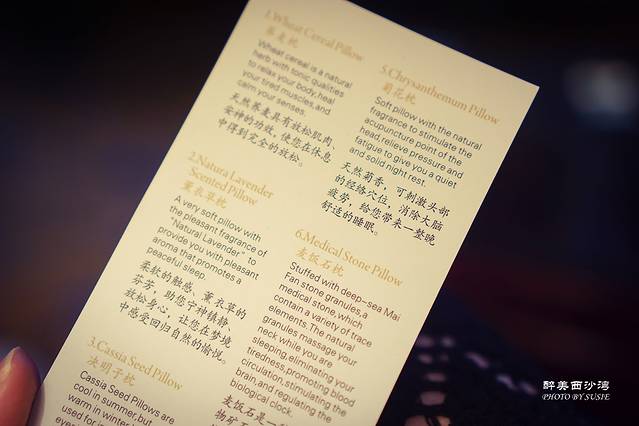 1.Wheat Cereal Pillow
荞麦枕
Wheat cereal is a natural
herb with tonic qualities
to relax your body,heal
your tired muscles,and
calm your senses.
天然荞麦具有放松肌肉、
安神的功效，使您在休息
中得到完全的放松。
2.Natura Lavender
Scented Pillow
薰衣草枕
A very soft pillow with
the pleasant fragrance of
"Natural Lavender" to
provide you with pleasant
aroma that promotes a
peaceful sleep.
柔软的触感、薰衣草的
芬芳，助您宁神镇静、
放松身心，让您在梦境
中感受回归自然的愉悦。
3.Cassia Seed Pillow
决明子枕
Cassia Seed Pillows are
cool in summer,but
warm in winter
used for
5.Chrysanthemum Pillow
菊花枕
Soft pillow with the natural
fragrance to stimulate the
acupuncture point of the
head,relieve pressure and
fatigue to give you a quiet
and solid night rest.
天然菊香，可刺激头部
的经络穴位，消除大脑
疲劳，给您带来一整晚
舒适的睡眠。
6.Medical Stone Pillow
麦饭石枕
Stuffed with deep-sea Mai
Fan stone granules,a
medical stone,which
contain a variety of trace
elements.The natural
granules massage your
neck while you are
sleeping,eliminating your
tiredness,promoting blood
circulation,stimulating the
brain,and regulating the
biological clock.
麦饭石是一
物矿石
醉美西沙湾
PHOTO BY SUSIE